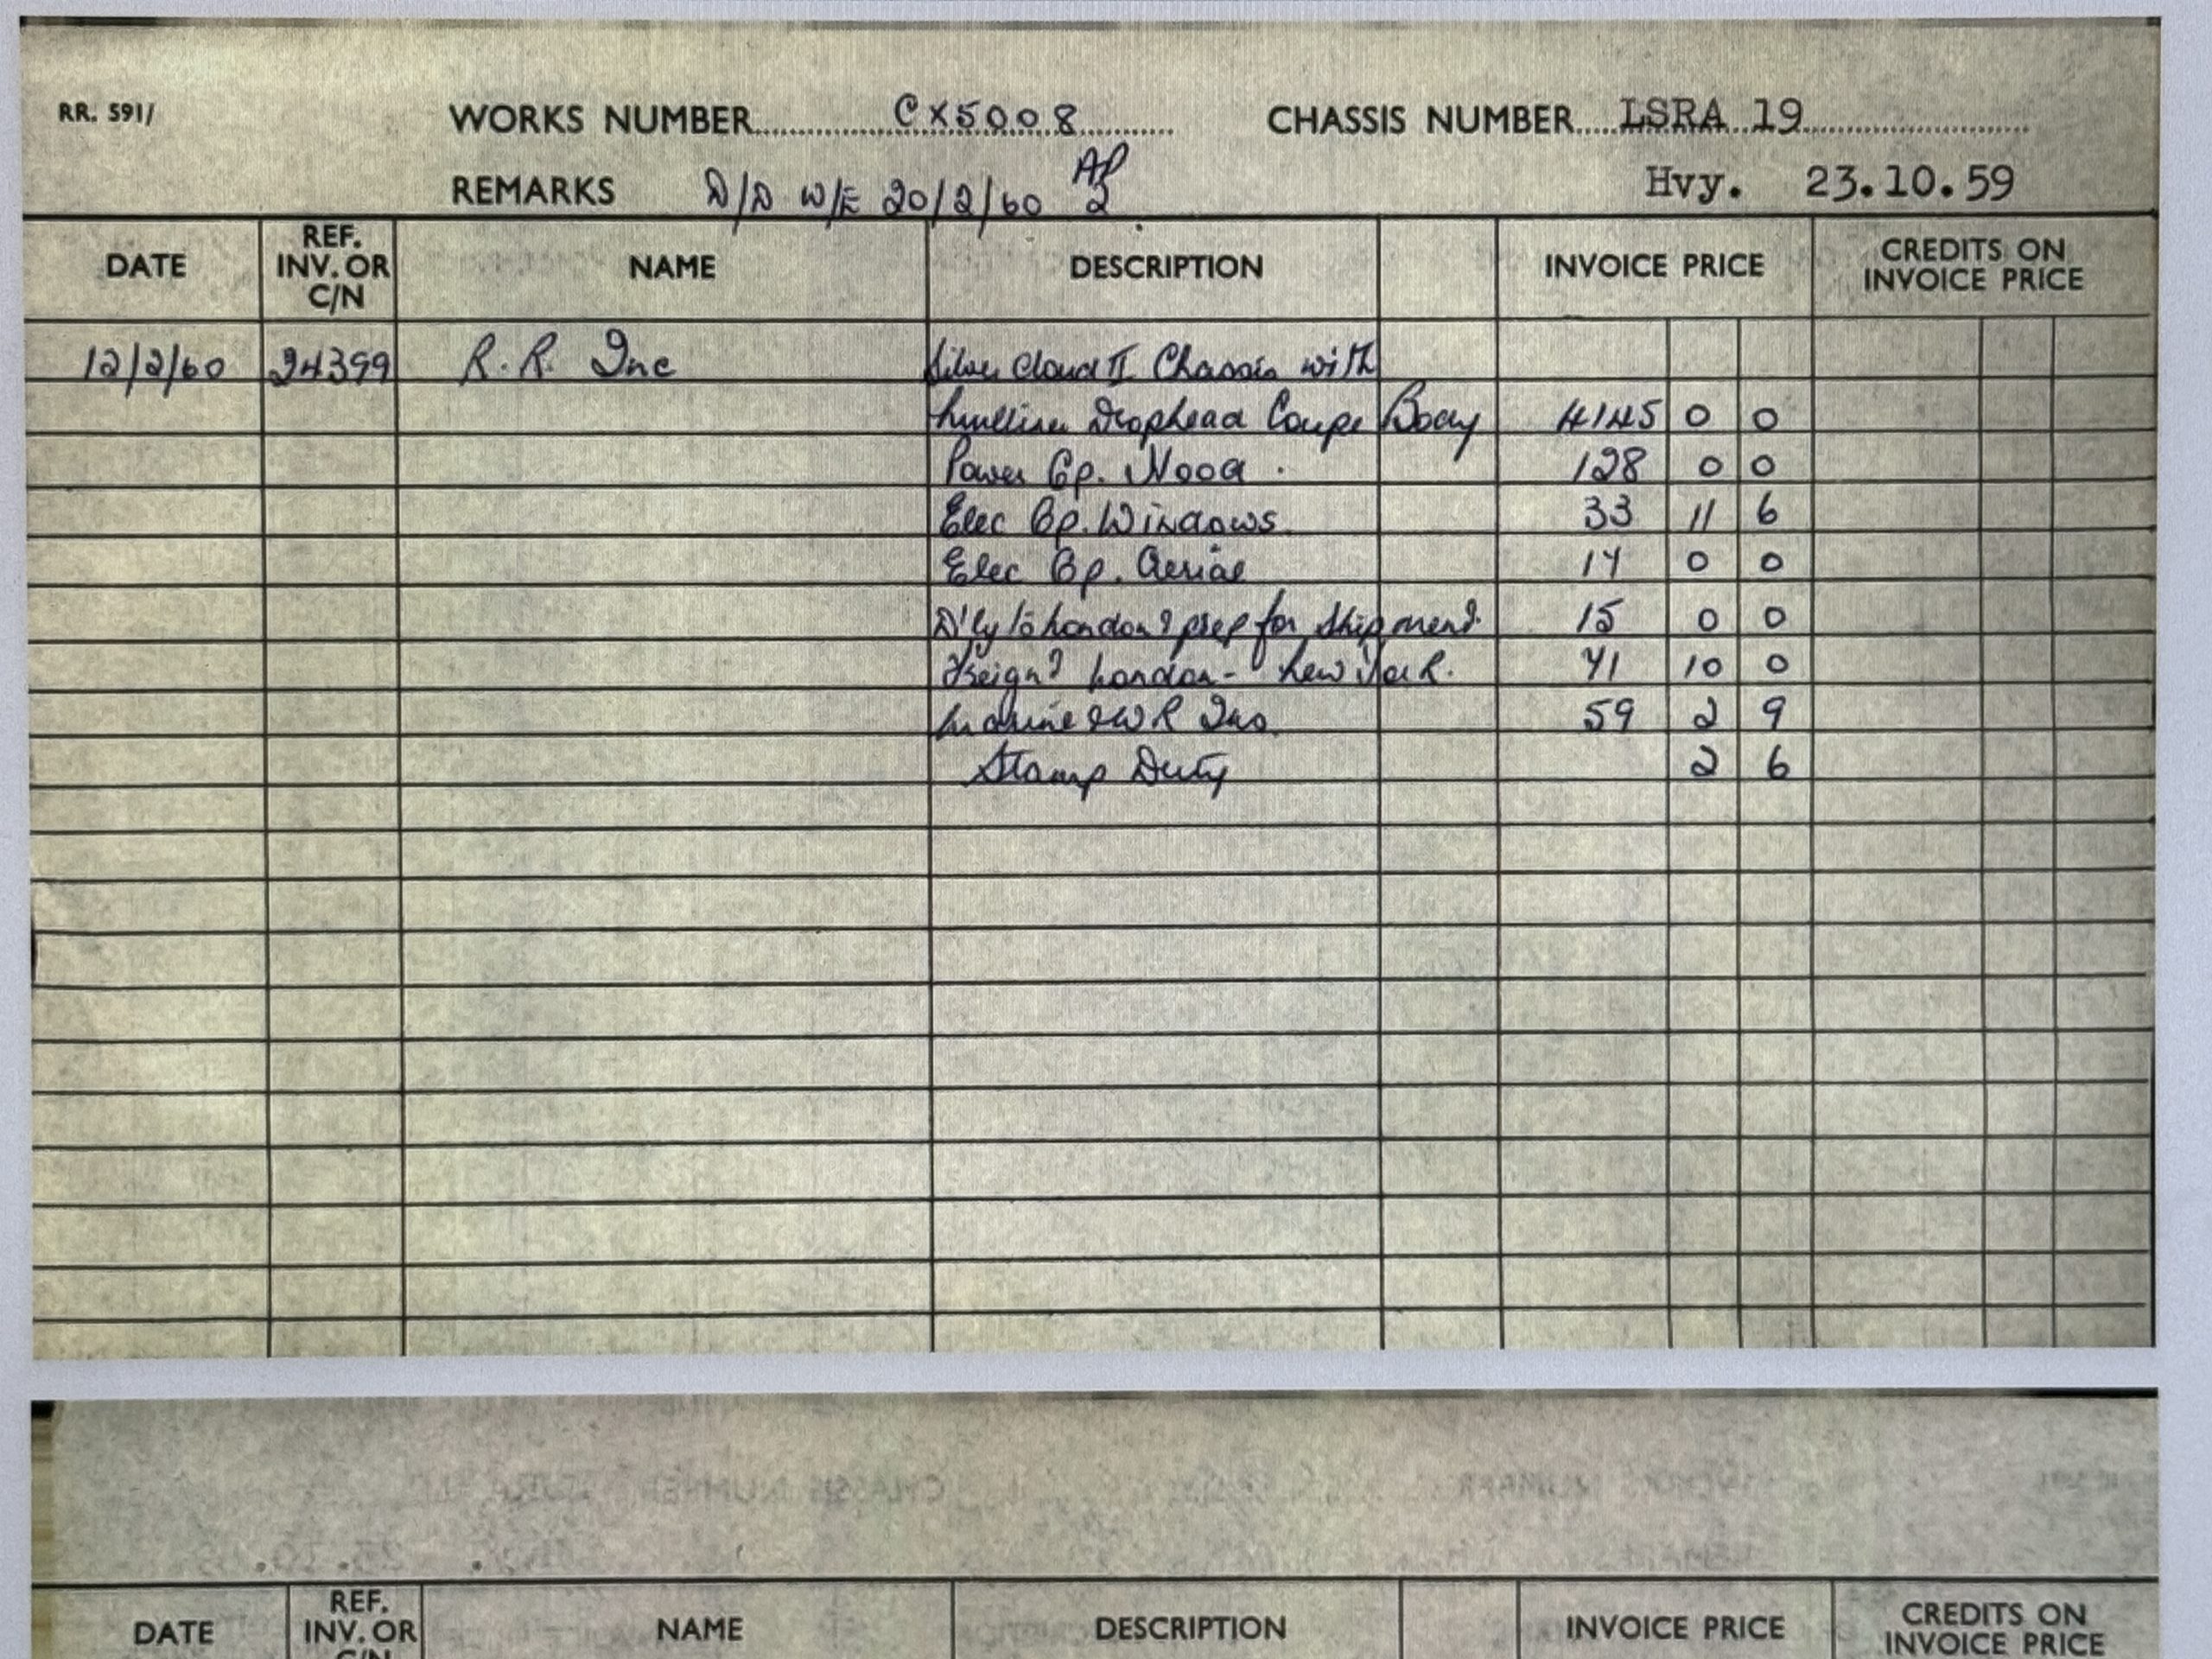 RR. 591/ WORKS NUMBER CX5008 CHASSIS NUMBER LSRA 19
REMARKS D/D W/E 20/2/60 Hvy. 23.10.59
DATE REF. INV. OR C/N NAME DESCRIPTION INVOICE PRICE CREDITS ON INVOICE PRICE
12/2/60 24399 R.R. Inc Silver Cloud II Chassis with
Mulliner Drophead Coupe Body 4145 0 0
Power Op. Hood. 128 0 0
Elec Op. Windows 33 11 6
Elec Op. Aerial 14 0 0
D'ly to London & prep for shipment. 15 0 0
Freight London - New York. 41 10 0
Marine & WR Ins 59 2 9
Stamp Duty 2 6
CHASSIS NUMBER
DATE REF. INV. OR C/N NAME DESCRIPTION INVOICE PRICE CREDITS ON INVOICE PRICE